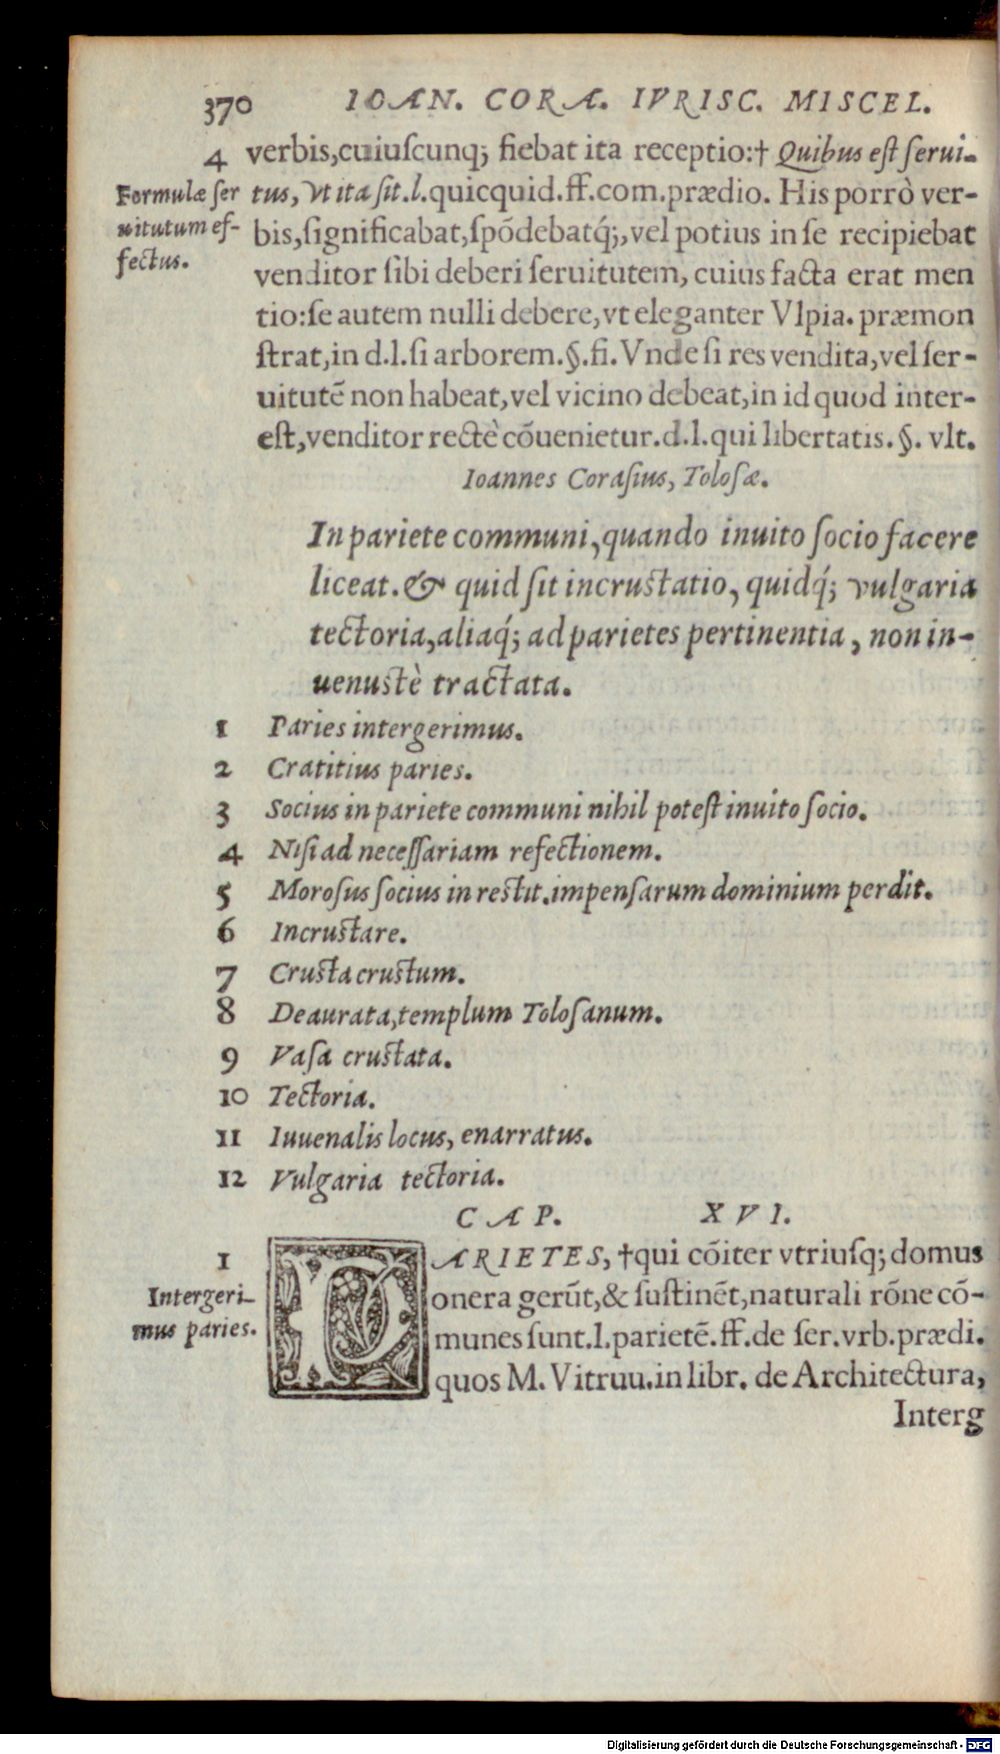 370 IOAN. CORA. IVRISC. MISCEL.
4 verbis,cuiuſcunq; fiebat ita receptio:† Quibus eſt ſerui-
Formulæ ſer
uitutum ef-
fectus.
tus, Vt ita ſit.l.quicquid.ff.com.prædio. His porrò ver-
bis,ſignificabat,ſpōdebatq́;,vel potius in ſe recipiebat
venditor ſibi deberi ſeruitutem, cuius facta erat men
tio:ſe autem nulli debere,vt eleganter Vlpia. præmon
ſtrat,in d.l.ſi arborem.§.fi. Vnde ſi res vendita,vel ſer-
uitutē non habeat,vel vicino debeat,in id quod inter-
eſt,venditor rectè cōuenietur.d.l.qui libertatis. §. vlt.
Ioannes Coraſius, Toloſæ.
In pariete communi,quando inuito ſocio facere
liceat.& quid ſit incruſtatio, quidq́; vulgaria
tectoria,aliaq́; ad parietes pertinentia, non in-
uenuſtè tractata.
1 Paries intergerimus.
2 Cratitius paries.
3 Socius in pariete communi nihil poteſt inuito ſocio.
4 Niſi ad neceſſariam refectionem.
5 Moroſus ſocius in reſtit.impenſarum dominium perdit.
6 Incruſtare.
7 Cruſta cruſtum.
8 Deaurata,templum Toloſanum.
9 Vaſa cruſtata.
10 Tectoria.
11 Iuuenalis locus, enarratus.
12 Vulgaria tectoria.
CAP. XVI.
1
Intergeri-
mus paries.
PARIETES, †qui cōiter vtriuſq; domus
onera gerūt,& ſuſtinēt,naturali rōne cō-
munes ſunt.l.parietē.ff.de ſer.vrb.prædi.
quos M. Vitruu.in libr. de Architectura,
Interg
Digitalisierung gefördert durch die Deutsche Forschungsgemeinschaft - DFG